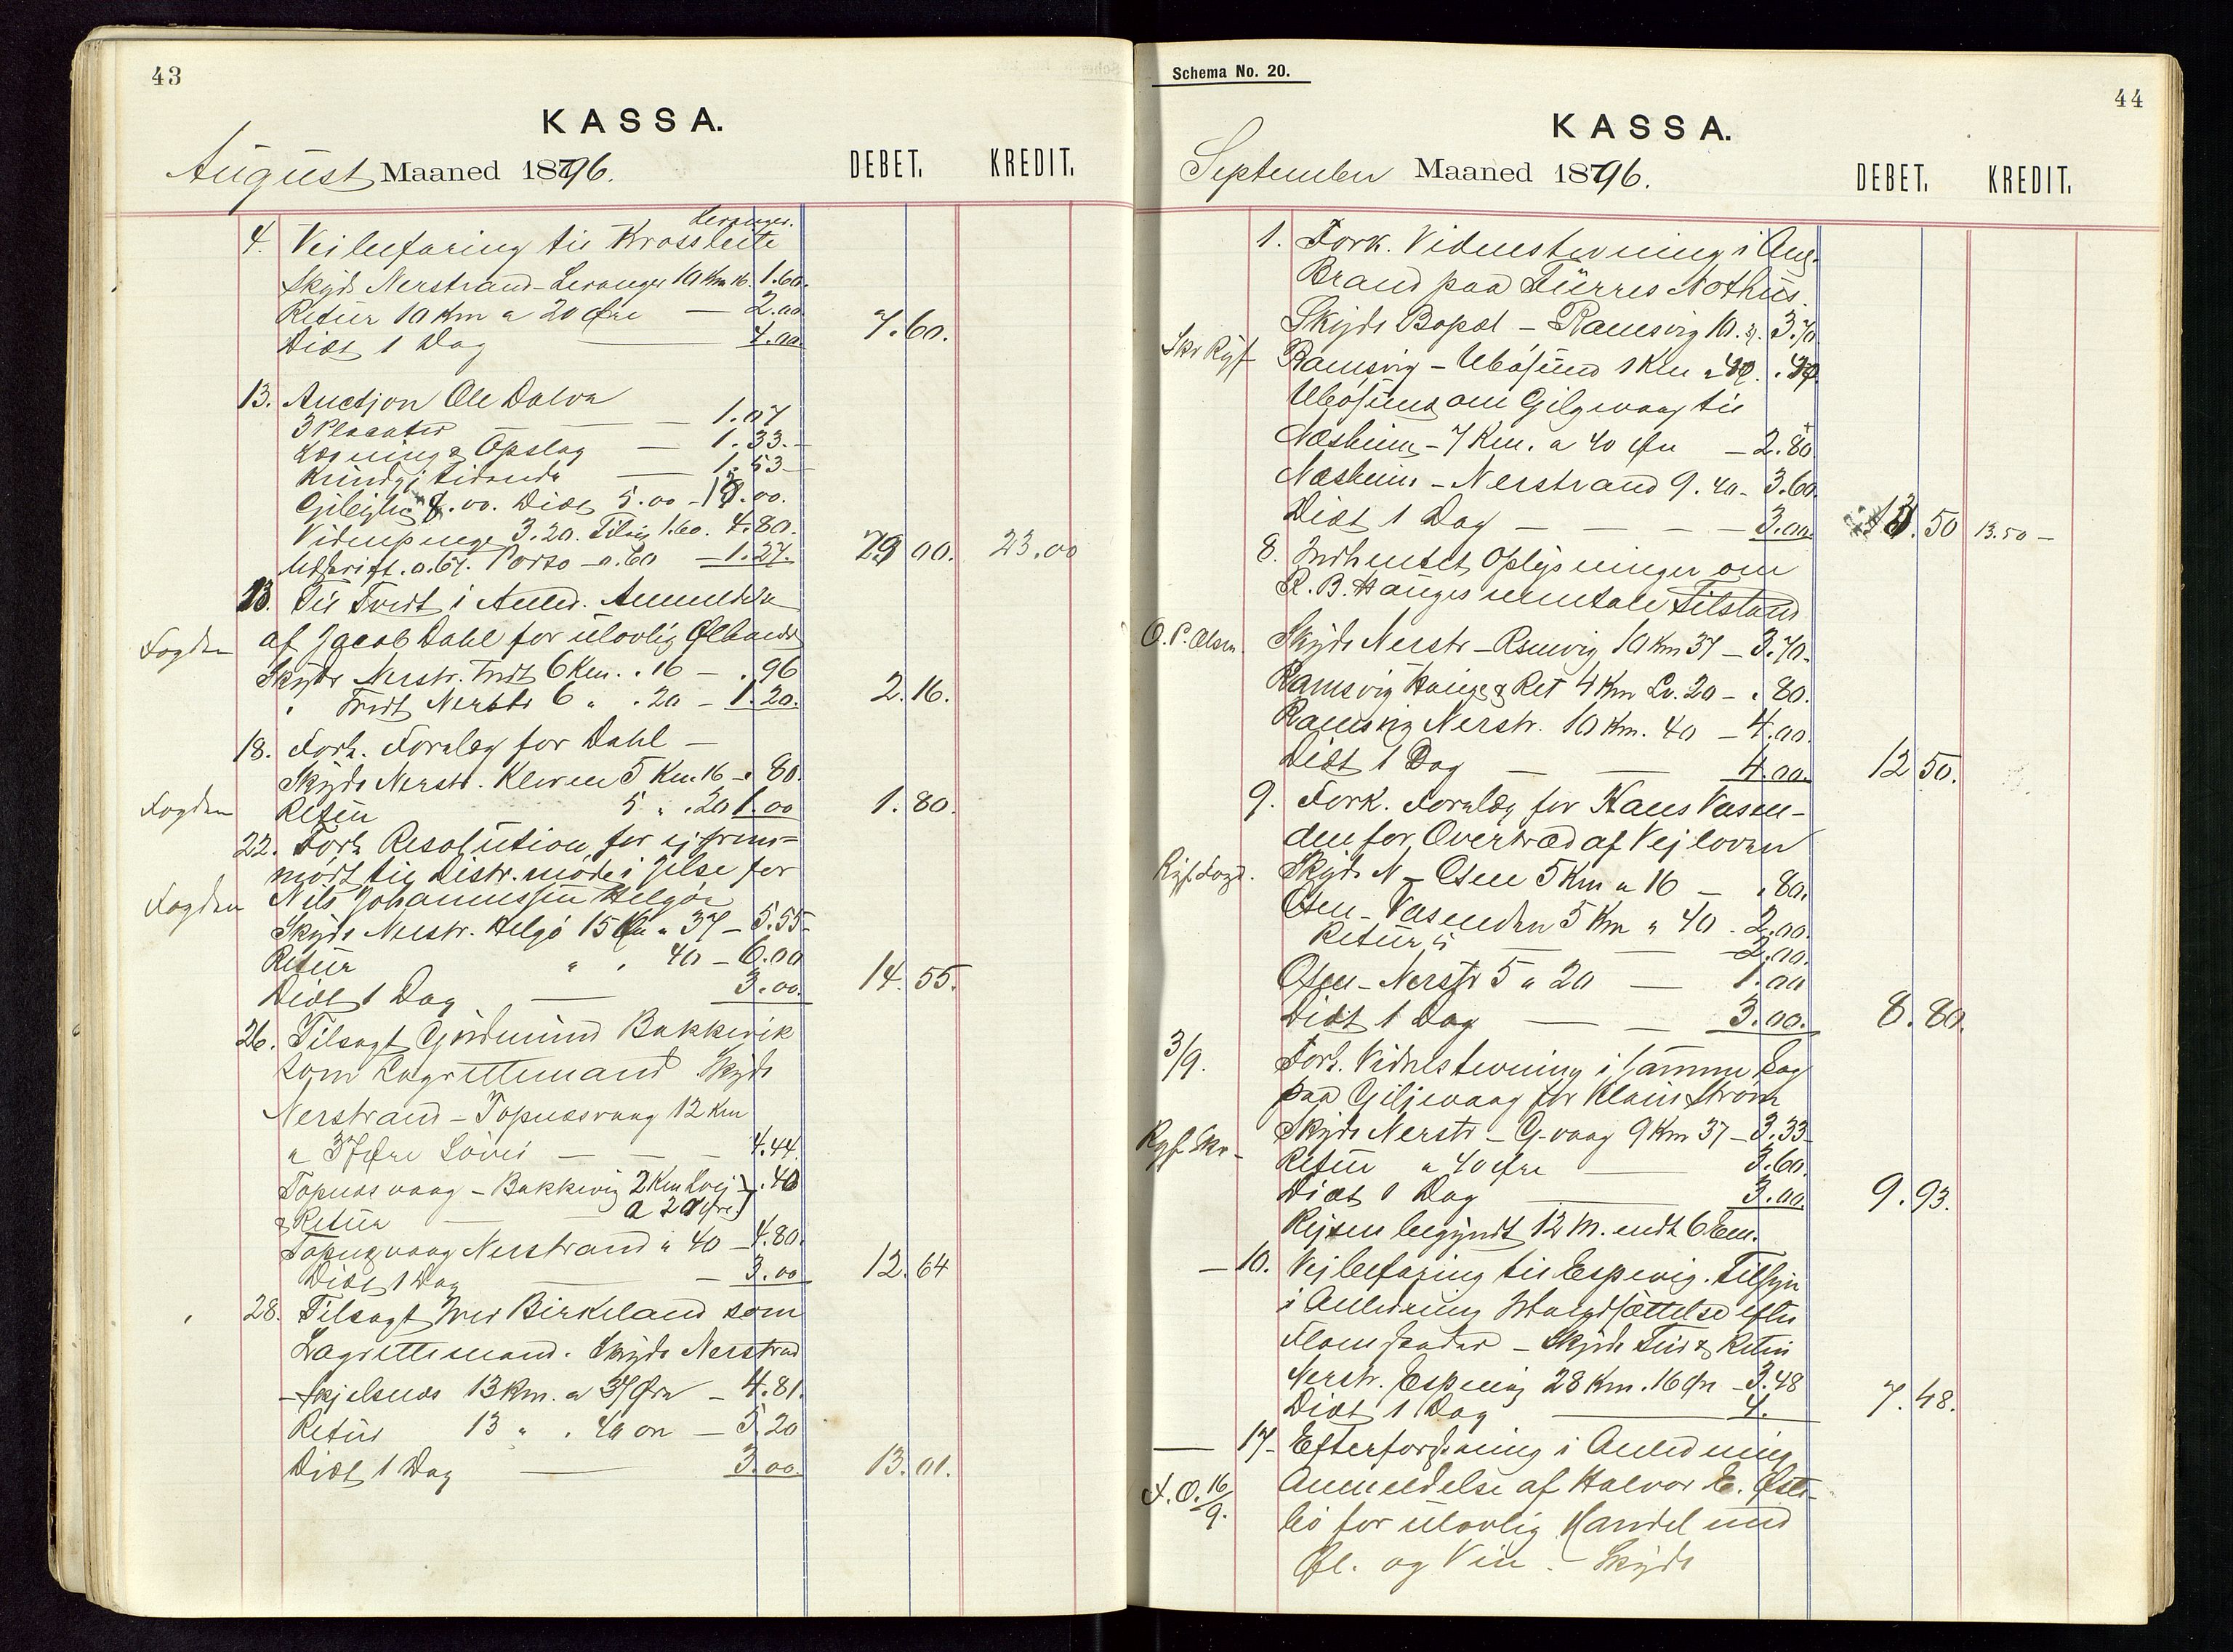 43
KASSA.
August Maaned 1896.
DEBET. KREDIT.
Leranger.
4. Veibefaring til Krossleite
Skyds Nerstrand - Leranger 10 Km 16. 1.60.
Retur 10 Km a 20 Øre — 2.00
Diæt 1 Dag — 4.00 7.60.
13. Auction Ole Dalva
3 Placater — 1.07
Læsning & Opslag — 1.33.-
Kundgj tidende — 1.53-
Diæt 5.00
Vidnepenge 3.20. 1.60. 4.80.
Udskrift. 0.67. Porto - 0.60 — 1.27. 29 00. 23.00
13. Til Tvedt i Anled. Anmeldelse
af Jacob Dahl for ulovlig Ølhandel
Fogden
Skyds Nerstr. Tvedt 6 Km. . 16 - . 96
" Tvedt Nerstr 6 " . 20 - 1.20. 2.16.
18. Fork. Forelæg for Dahl —
Skyds Nerstr. Kleven 5 Km. 16 - . 80.
Fogden
Retur 5 " . 20 1.00 1.80.
22. Fork Resolution for ej frem-
mødt til Distr. møde i Jelse for
Fogden
Nils Johannessen Helgøe
Skyds Nerstr. Helgö 15 Km a 37 - 5.55-
Retur " . 40 - 6.00
Diæt 1 Dag — 3.00. 14.55.
26. Tilsagt Gudmund Bakkevik
som Lagrettemand Skyds
Nerstrand - Topnesvaag 12 Km
a 37 Øre — 4.44.
Topnesvaag - Bakkevig 2 Km Lvej . 40
& Retur — a 20 Øre
Topnesvaag Nerstrand a 40 - 4.80.
Diæt 1 Dag — 3.00 12.64
28. Tilsagt Birkeland som
Lagrettemand. Skyds Nerstrand
- Skjelsnes 13 Km. a 37 Øre - 4.81.
Retur 13 " . 40 — 5.20
Diæt 1 Dag — 3.00. 13.01.
Schema No. 20.
44
KASSA.
September Maaned 1896.
DEBET. KREDIT.
1. Fork. Vidnestevning i Anl.
Brand paa Türres Nothus.
Skyds Bopæl - Ramsvig 10. 37 3.70
Skr Ryf
Ramsvig - Ubøsund 1 Km a 40. . 40
Ubøsund om Gilgevaag til
Næsheim - 7 Km. a 40 Øre - 2.80
Næsheim - Nerstrand 9. 40 - 3.60
Diæt 1 Dag — 3.00. 13.50 13.50 -
8. Indhentet Oplysninger om
R. B. Hauges mentale Tilstand
O. P. Olsen.
Skyds Nerstr - Ramsvig 10 Km 37 - 3.70.
Ramsvig Hauge & Ret 4 Km Lv. 20 - . 80.
Ramsvig Nerstr. 10 Km. 40 - 4.00.
Diæt 1 Dag — 4.00. 12 50.
9. Fork. Forelæg for Hans Vasen-
den for Overtræd af Vejloven
Ryf. Fogd.
Skyds N - Osen 5 Km a 16 - . 80.
Osen - Vasenden 5 Km a 40 . 2.00.
Retur — 2.00.
Osen - Nerstr 5 a 20 — 1.00
Diæt 1 Dag — 3.00. 8.80.
3/9. Fork. Vidnestevning i samme Sag
paa Giljevaag for Klein Strøm
Ryf. Skr -
Skyds Nerstr - G-vaag 9 Km 37 - 3.33
Retur a 40 Øre — 3.60.
Diæt 1 Dag — 3.00. 9.93.
Rejsen begyndt 12 M. endt 6 Em.
- 10. Vejbefaring til Espevig. Tilsyn
i Anledning Istandsættelse efter
Flomskader - Skyds Tur & Retur
Nerstr. Espevig 28 Km. 16 Øre - 3.48
Diæt 1 Dag — 4. 7.48.
— 17- Efterforskning i Anledning
F. O. 16/9.
Anmeldelse af Halvor E. Øste-
bö for ulovlig Handel med
Øl. og Vin. - Skyds